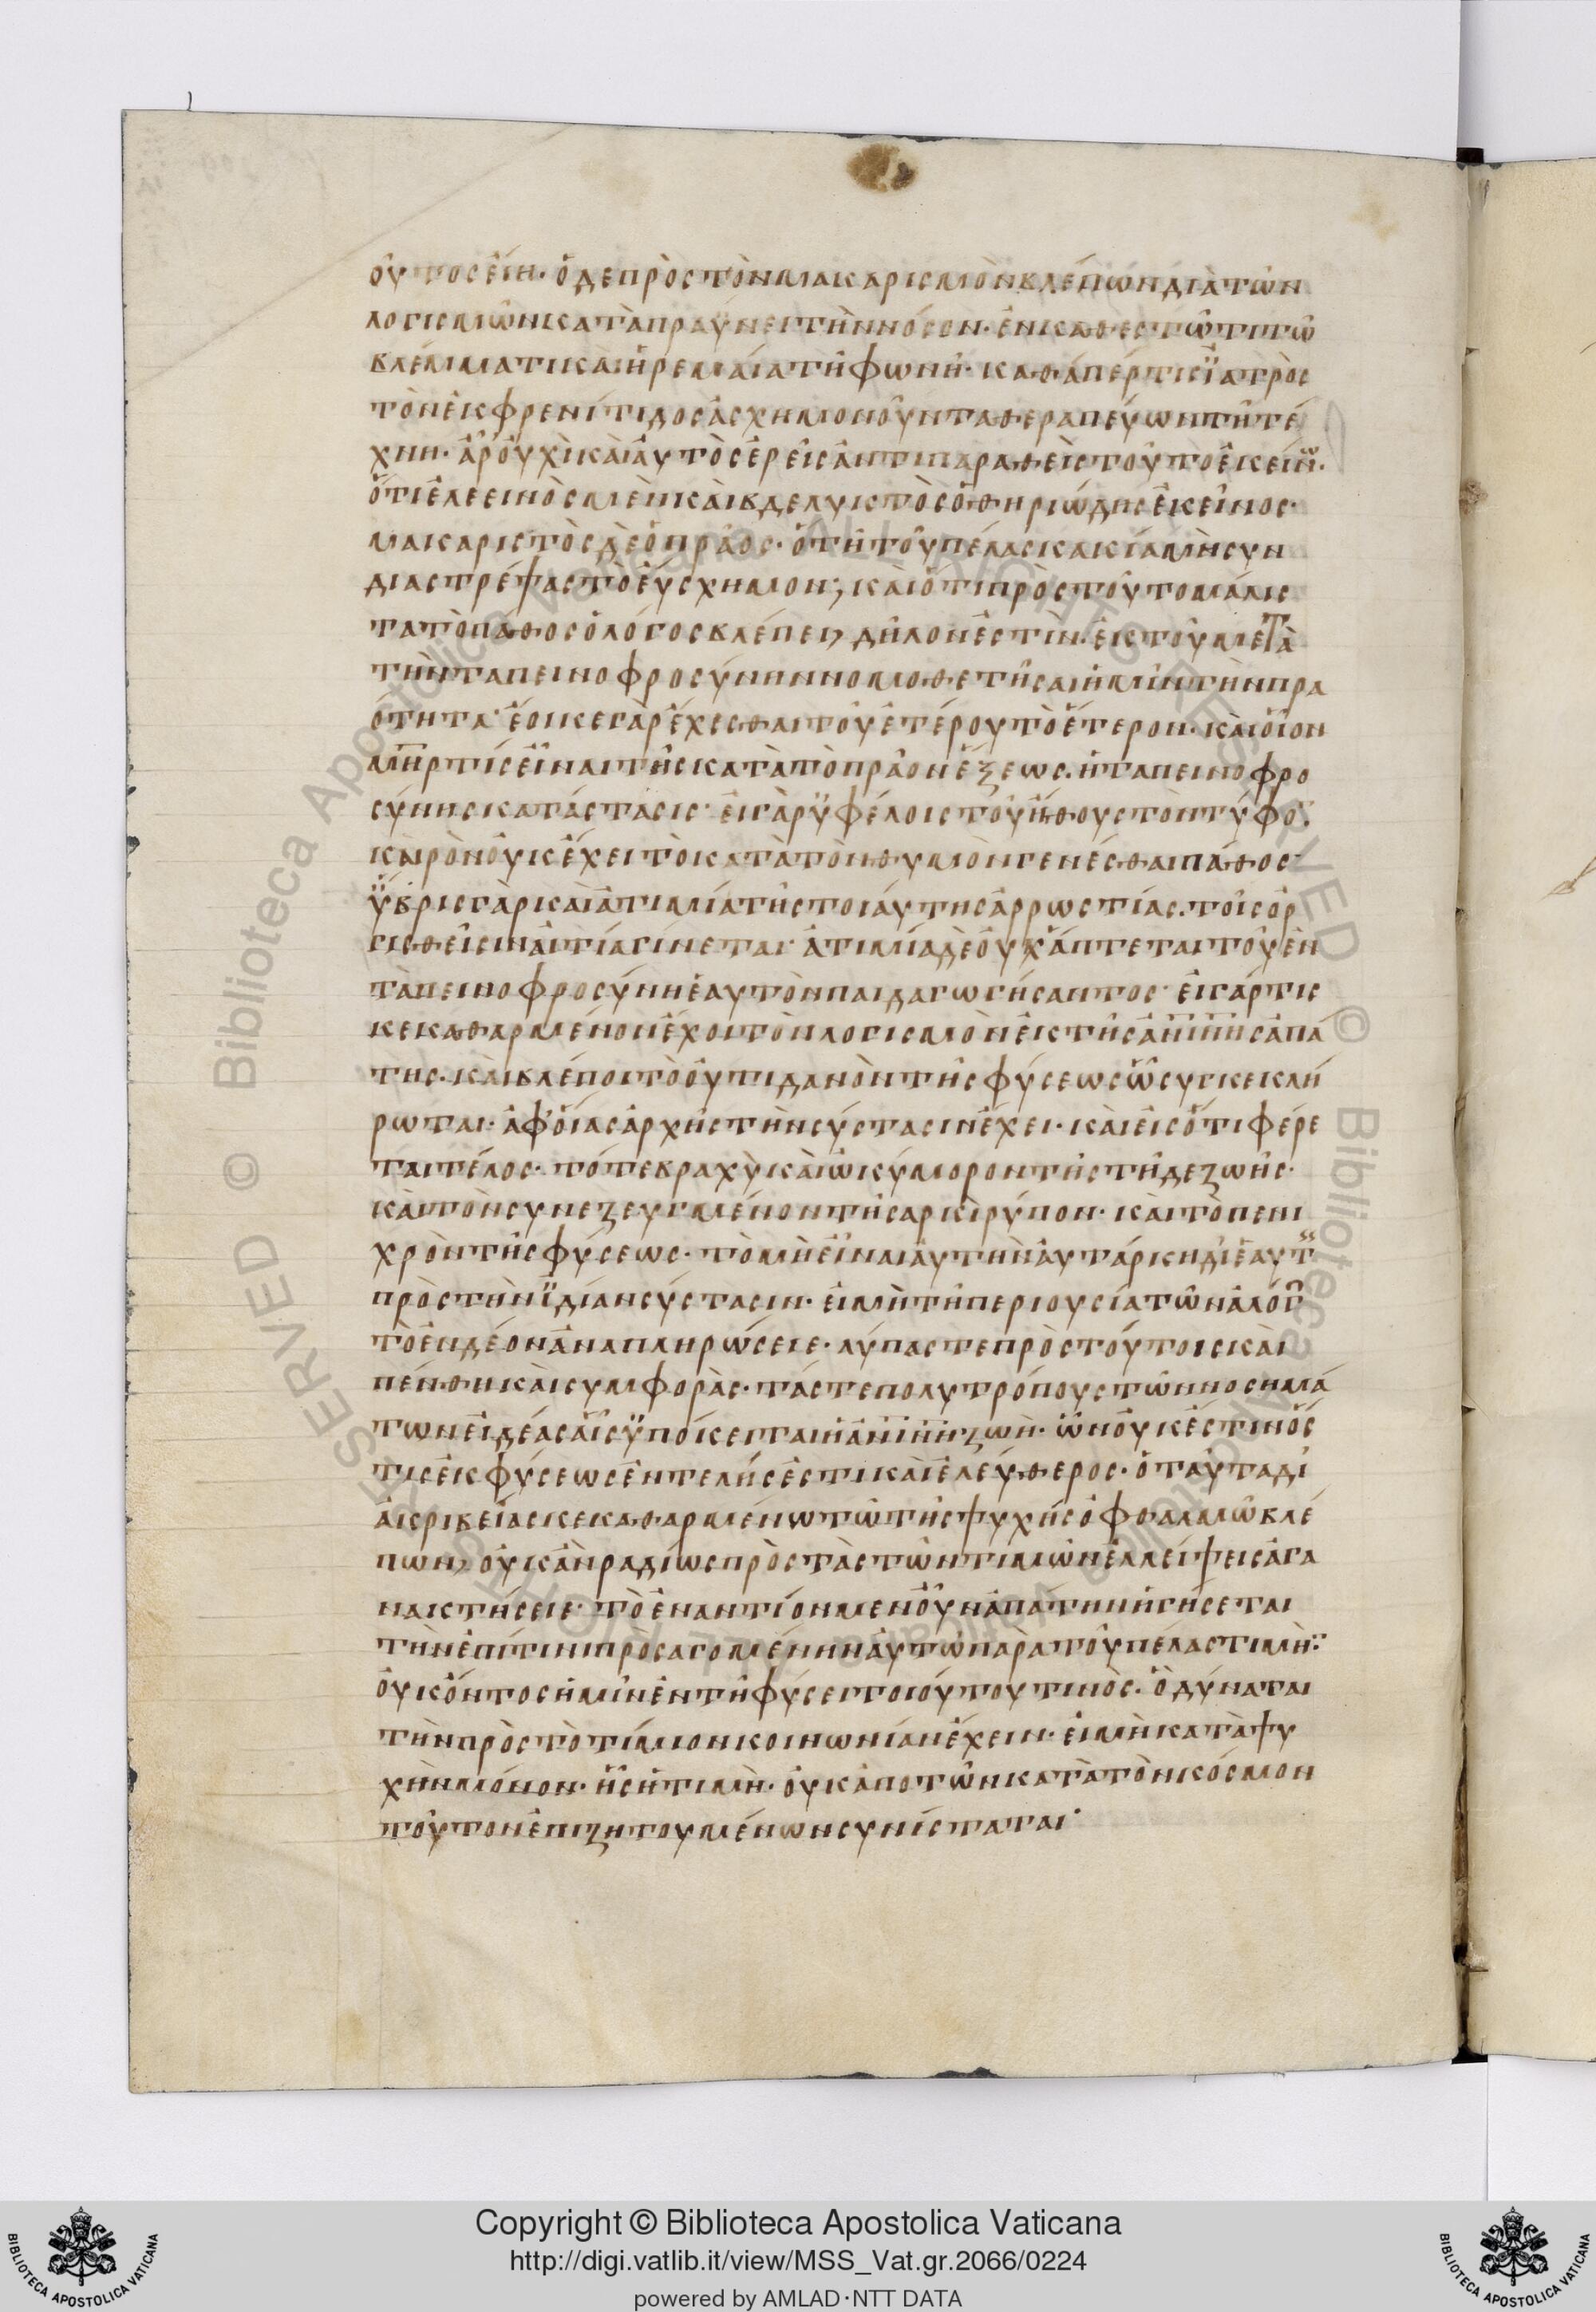 οὗτος εἴη· ὁ δὲ πρὸς τὸν μακαρισμὸν βλέπων διὰ τῶν
λογισμῶν καταπραΰνει τὴν νόσον· ἐν καθεστῶτι τῶ
βλέμματι καὶ ἠρεμαία τῆ φωνῆ· καθάπέρ τις ϊατρὸς
τὸν ἐκ φρενίτιδος ἀσχημονοῦντα θεραπεύων τῆ τέ
χνη· ἆρ' οὐχὶ καὶ αὐτὸς ἐρεῖς ἀντιπαραθεὶς τοῦτο ἐκείν·
ὅτι ἐλεεινὸς μὲν καὶ βδελυκτὸς ὁ θηριώδης ἐκεῖνος·
μακαριστὸς δὲ ὁ πρᾶος· ὁ τῆ τοῦ πέλας κακία μὴ συν
διαστρέψας τὸ εὔσχημον; καὶ ὅτι πρὸς τοῦτο μάλισ
τα τὸ πάθος ὁ λόγος βλέπει, δῆλον ἐστὶν· ἐκ τοῦ μετὰ
τὴν ταπεινοφροσύνην νομοθετῆσαι ἡμῖν τὴν πρα
ότητα· ἔοικε γὰρ ἔχεσθαι τοῦ ἑτέρου τὸ ἕτερον· καὶ οἷον
μηρ τίς εἶναι τῆς κατὰ τὸ πρᾶον ἕξεως· ἡ ταπεινοφρο
σύνης κατάστασις· εἰ γὰρ ὑφέλοις τοῦ ἤθους τὸν τύφο
καιρὸν οὐκ ἔχει τὸ κατὰ τὸν θυμὸν γενέσθαι πάθος·
ὕβρις γὰρ καὶ ἀτιμία τῆς τοιαύτης ἀρρωστίας· τοῖς ὀρ
γισθεῖσιν αἰτία γίνεται· ἀτιμία δὲ οὐχ ἅπτεται τοῦ ἐν
ταπεινοφροσύνη ἑαυτὸν παιδαγωγήσαντος· εἰ γάρ τις
κεκαθαρμένον ἔχοι τὸν λογισμὸν ἐκ τῆς ἀνίνης ἀπά
της· καὶ βλέποι τὸ οὐτιδανὸν τῆς φύσεως ὧ συγκεκλή
ρωται· ἀφ' οἵας ἀρχῆς τὴν σύστασιν ἔχει· καὶ εἰς ὅτι φέρε
ται τέλος· τό τε βραχὺ καὶ ὠκύμορον τῆς τῆδε ζωῆς·
καὶ τὸν συνεζευγμένον τῆ σαρκὶ ρύπον· καὶ τὸ πενι
χρὸν τῆς φύσεως· τὸ μὴ εἶναι αὐτὴν αὐτάρκη δι' ἑαυτ
πρὸς τὴν ϊδίαν σύστασιν· εἰ μὴ τῆ περιουσία τῶν ἀλόγ
τὸ ἐνδέον ἀναπληρώσειε· λύπας τε πρὸς τούτοις καὶ
πένθη καὶ συμφορὰς· τάς τε πολυτρόπους τῶν νοσημά
των εἰδέας αἷς ὑπόκειται ἡ ἀνίνη ζωὴ· ὧν οὐκ ἔστιν ὅσ
τις ἐκ φύσεως ἐντελής ἐστι καὶ ἐλεύθερος· ὁ ταῦτα δι'
ἀκριβείας κεκαθαρμένω τῶ τῆς ψυχῆς ὀφθαλμῶ βλέ
πων, οὐκ ἂν ραδίως πρὸς τὰς τῶν τιμῶν ἐλλείψεις ἀγα
νακτήσειε· τὸ ἐναντίον μὲν οὖν ἀπάτην ἡγήσεται
τὴν ἐπί τινι προσαγομένην αὐτῶ παρὰ τοῦ πέλας τιμὴν·
οὐκ ὄντος ἡμῖν ἐν τῆ φύσει τοιούτου τινὸς· ὃ δύναται
τὴν πρὸς τὸ τίμιον κοινωνίαν ἔχειν· εἰ μὴ κατὰ ψυ
χὴν μόνον· ἧς ἡ τιμὴ· οὐκ ἀπὸ τῶν κατὰ τὸν κόσμον
τοῦτον ἐπιζητουμένων συνίσταται·
Copyright © Biblioteca Apostolica Vaticana
http://digi.vatlib.it/view/MSS_Vat.gr.2066/0224
powered by AMLAD·NTT DATA